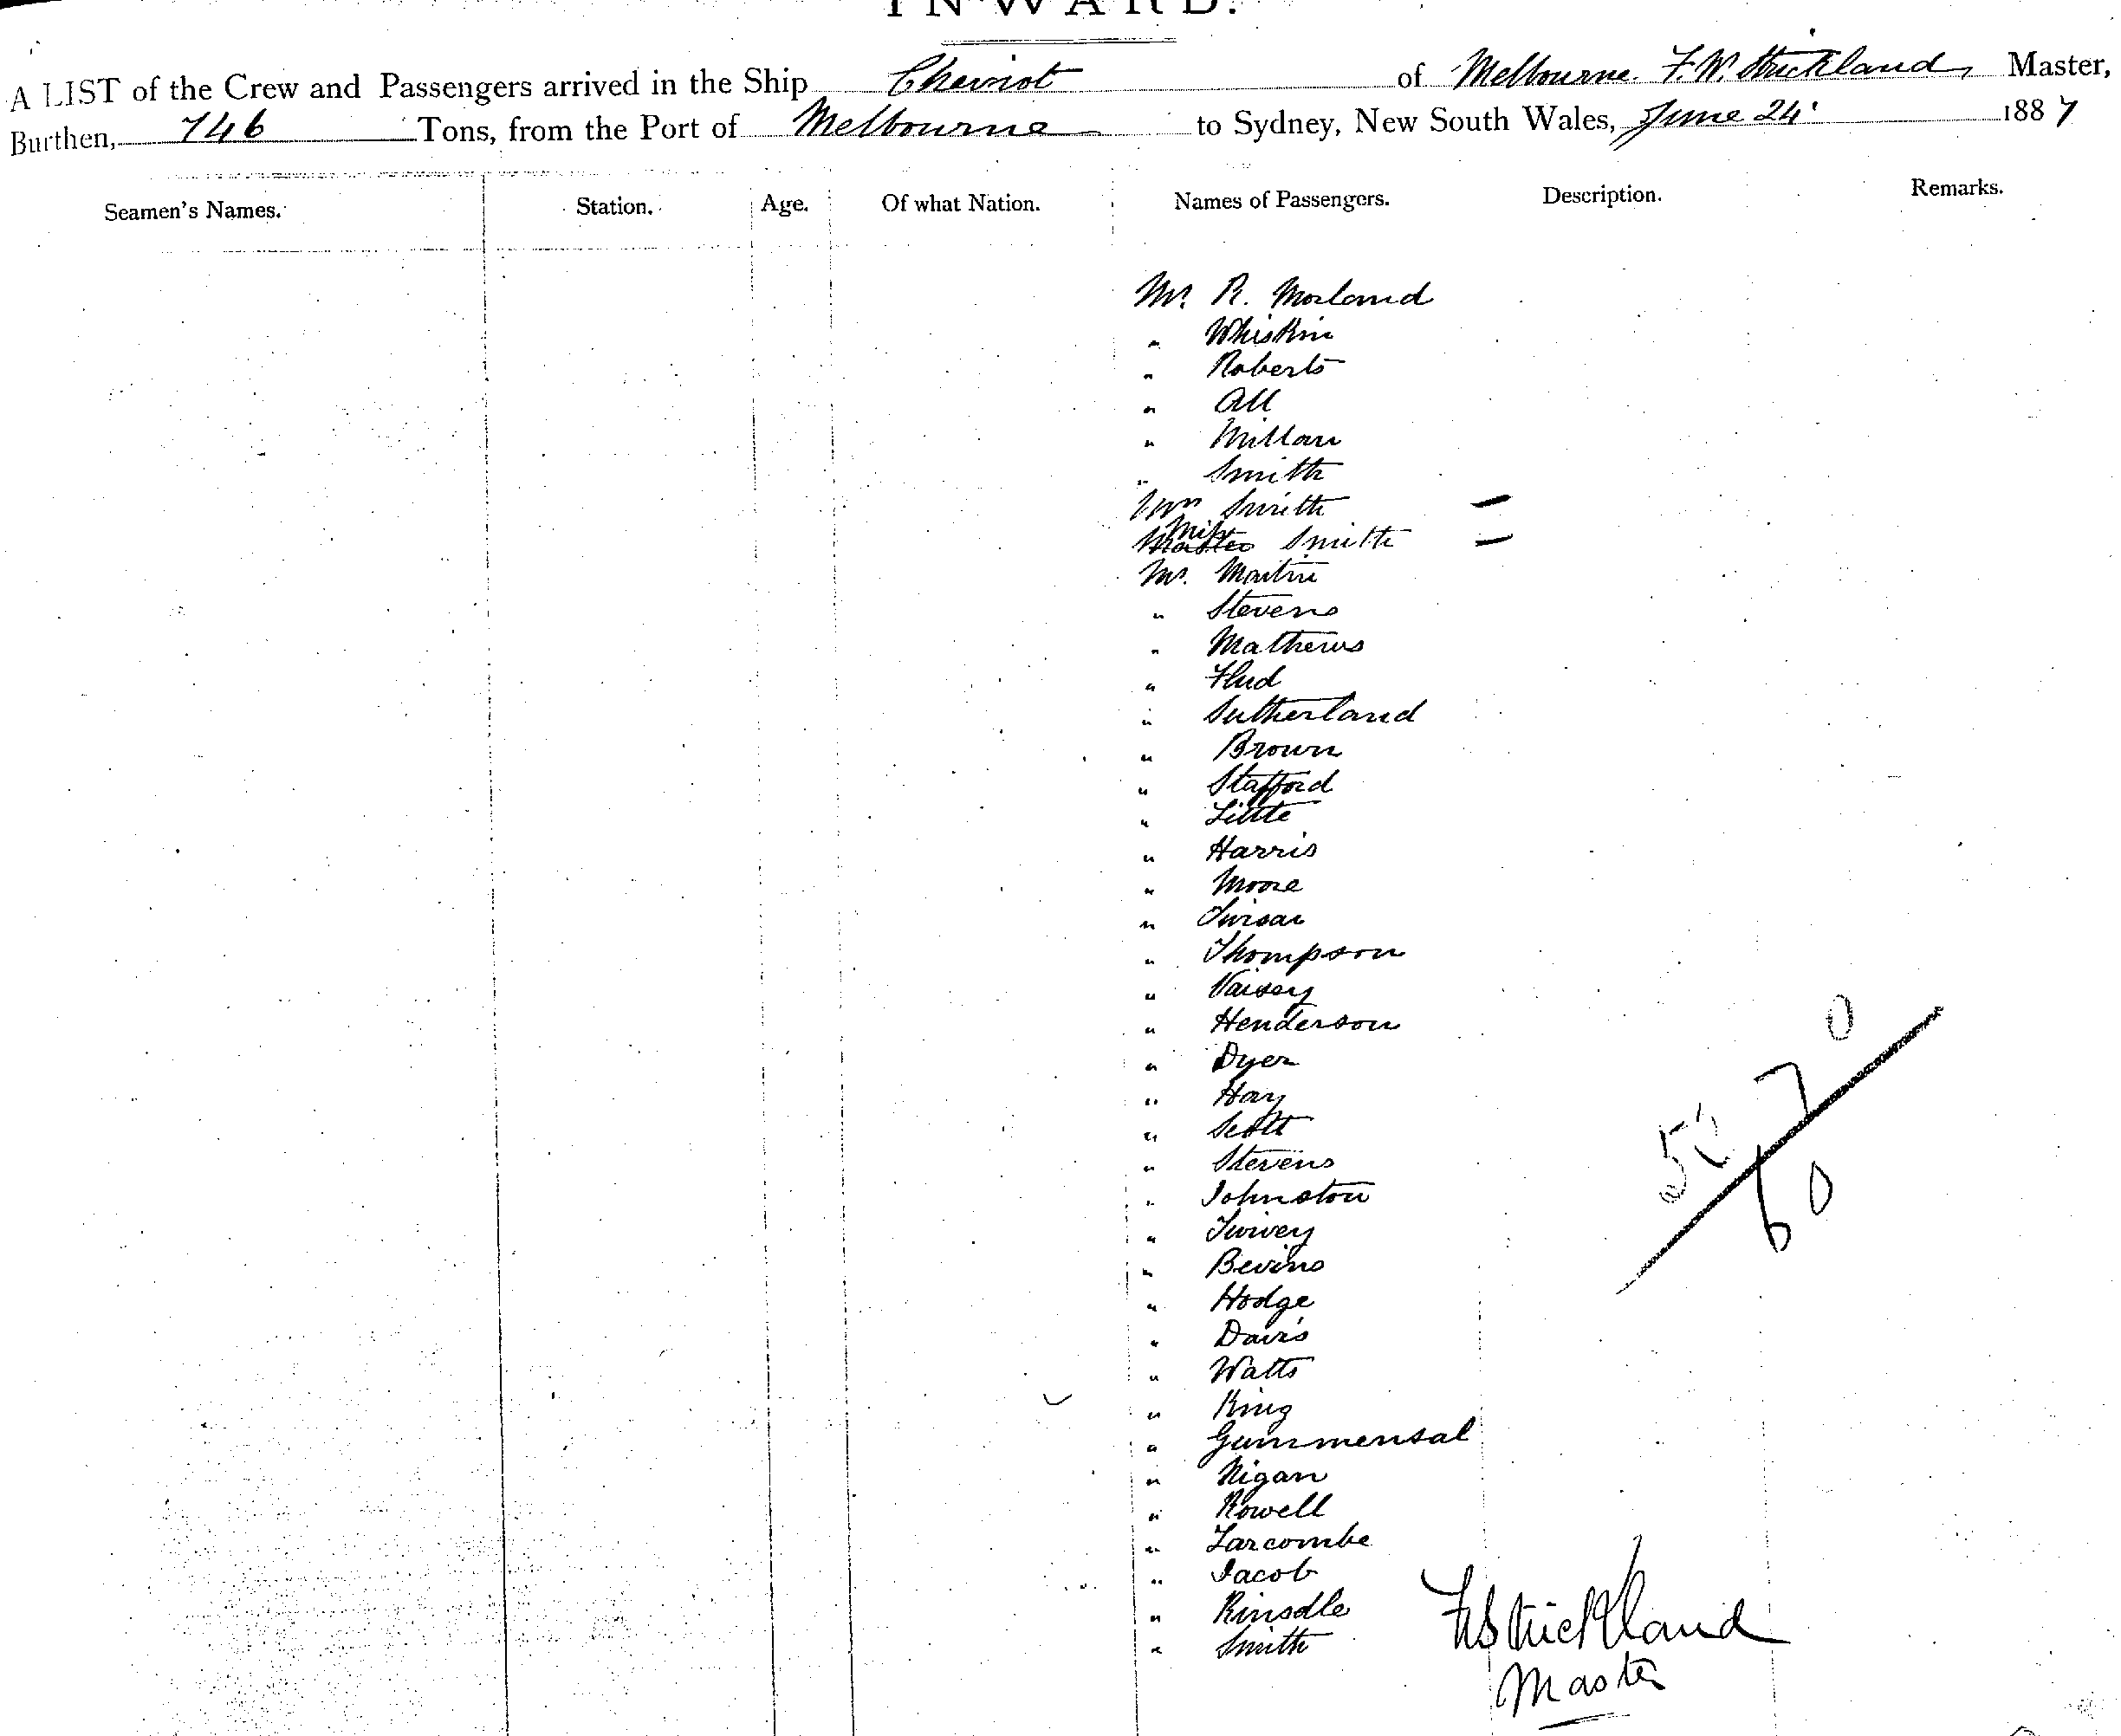 INWARD.
A LIST of the Crew and Passengers arrived in the Ship Cheviot of Melbourne. F. W. Strickland, Master,
Burthen, 746 Tons, from the Port of Melbourne to Sydney, New South Wales, June 24 1887
Seamen's Names. Station. Age. Of what Nation. Names of Passengers. Description. Remarks.
Mr. R. Morland
" Whiskin
" Roberts
" All
" Millan
" Smith
Mrs Smith
Miss Smith
Mr. Martin
" Stevens
" Mathews
" Flud
" Sutherland
" Brown
" Stafford
" Little
" Harris
" Moore
"
" Thompson
" Vaisey
" Henderson
" Dyer
" Hay
" Scott
" Stevens
" Johnston
" Turvey
" Bevins
" Hodge
" Davis
" Watts
" King
" Gummensal
" Nigan
" Rowell
" Larcombe
" Jacob
" Kinsdle
" Smith
70
60
FWStrickland
Master